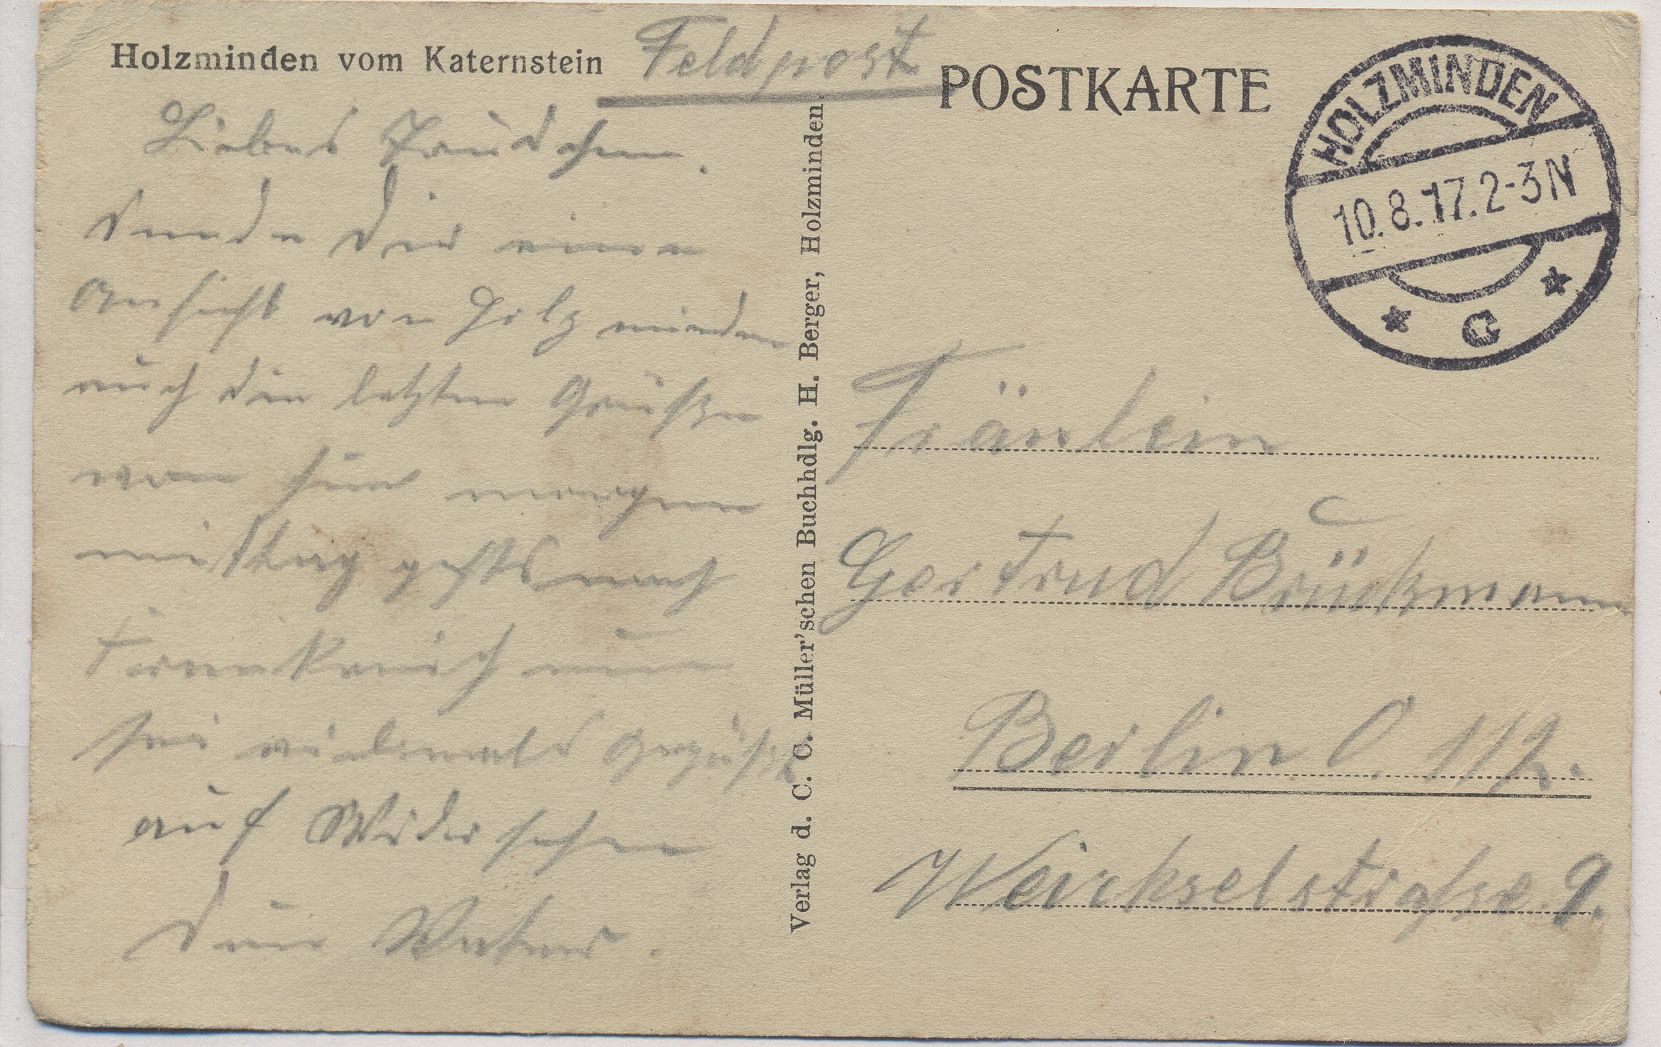 Holzminden vom Katernstein
Feldpost
POSTKARTE
HOLZMINDEN
10.8.17.2-3N
* C *
Liebes Trudchen.
Sende Dir eine
Ansicht von Holzminden
auch die letzten Grüße
von hier morgen
mittag gehts nach
Frankreich nun
sei vielmals gegrüßt
auf Widersehen
Dein Vater.
Verlag d. C. C. Müller'schen Buchhdlg. H. Berger, Holzminden.
Fräulein
Gertrud Brückmann
Berlin O. 112.
Weichselstraße. 9.